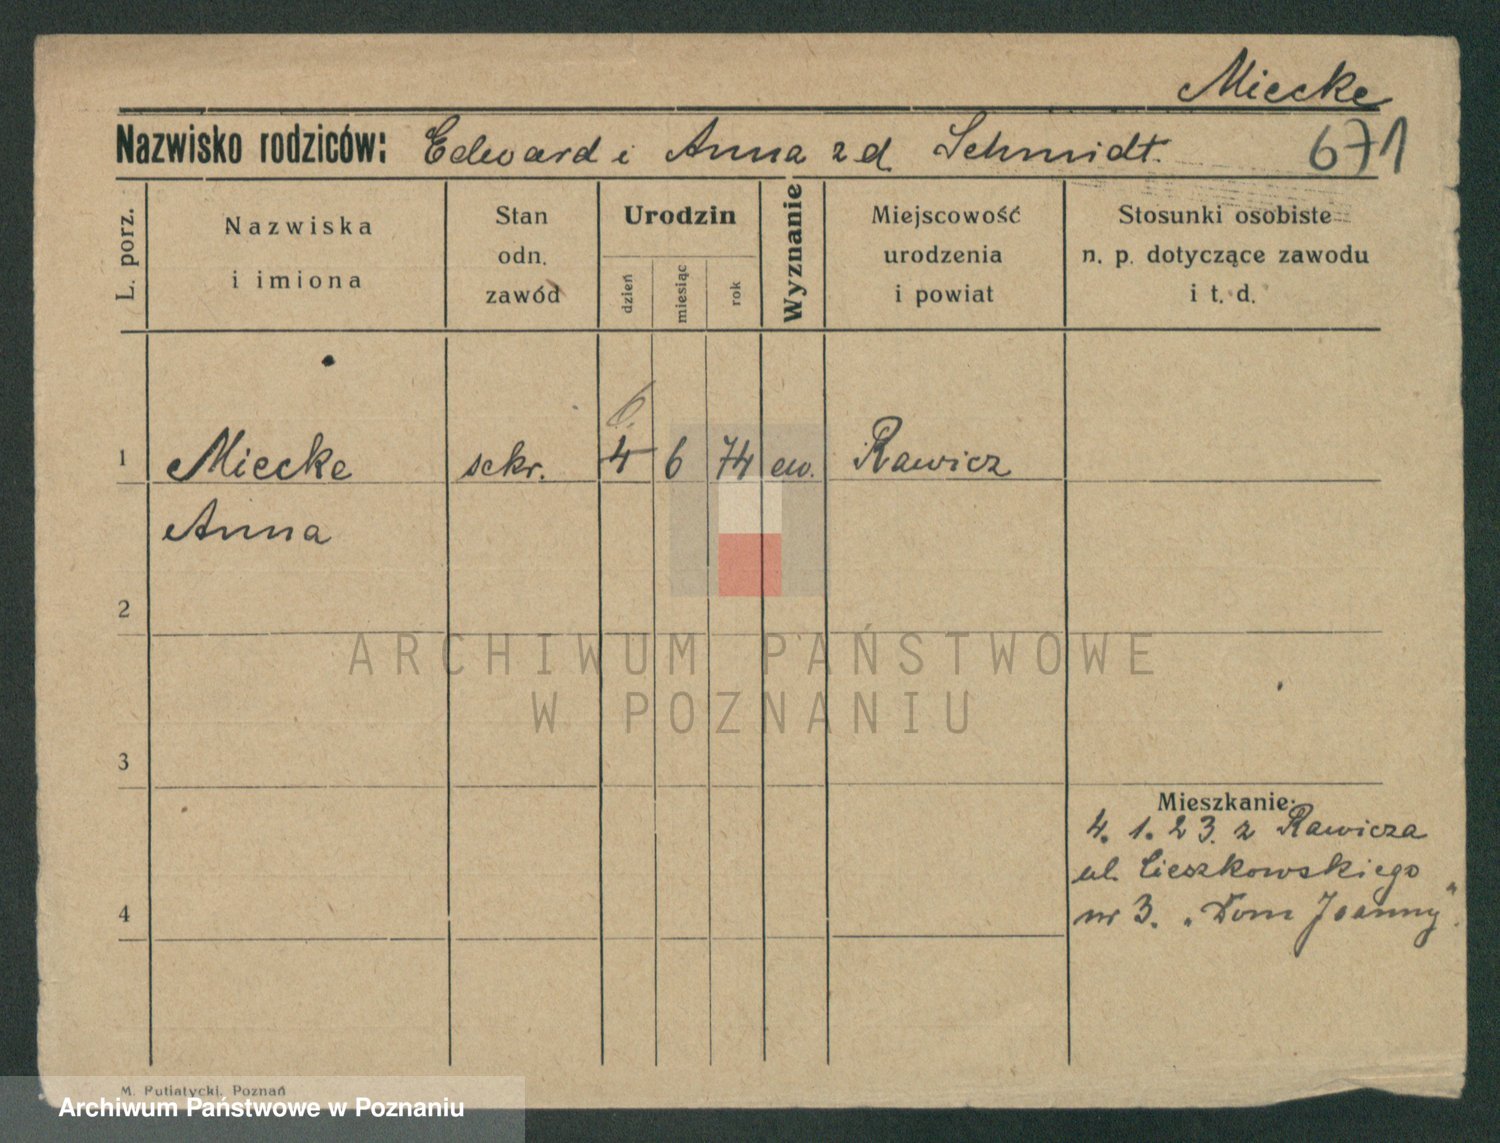 Miecke
Nazwisko rodziców: Edward i Anna z d. Schmidt.
671
L. porz.
Nazwiska
i imiona
Stan
odn.
zawód
Urodzin
dzień
miesiąc
rok
Wyznanie
Miejscowość
urodzenia
i powiat
Stosunki osobiste
n. p. dotyczące zawodu
i t. d.
6.
1 Miecke sekr. 4 6 74 ew. Rawicz
Anna
2
ARCHIWUM PAŃSTWOWE
W POZNANIU
3
Mieszkanie:
4. 1. 23. z Rawicza
ul. Cieszkowskiego
nr 3. „Dom Joanny".
4
M. Putiatycki, Poznań
Archiwum Państwowe w Poznaniu